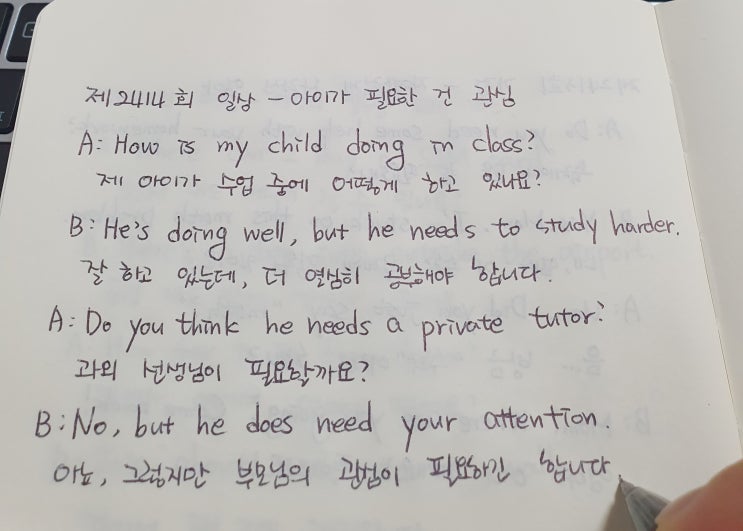 제2414회 일상 - 아이가 필요한 건 관심
A: How is my child doing in class?
제 아이가 수업 중에 어떻게 하고 있나요?
B: He's doing well, but he needs to study harder.
잘 하고 있는데, 더 열심히 공부해야 합니다.
A: Do you think he needs a private tutor?
과외 선생님이 필요할까요?
B: No, but he does need your attention.
아뇨, 그렇지만 부모님의 관심이 필요하긴 합니다.